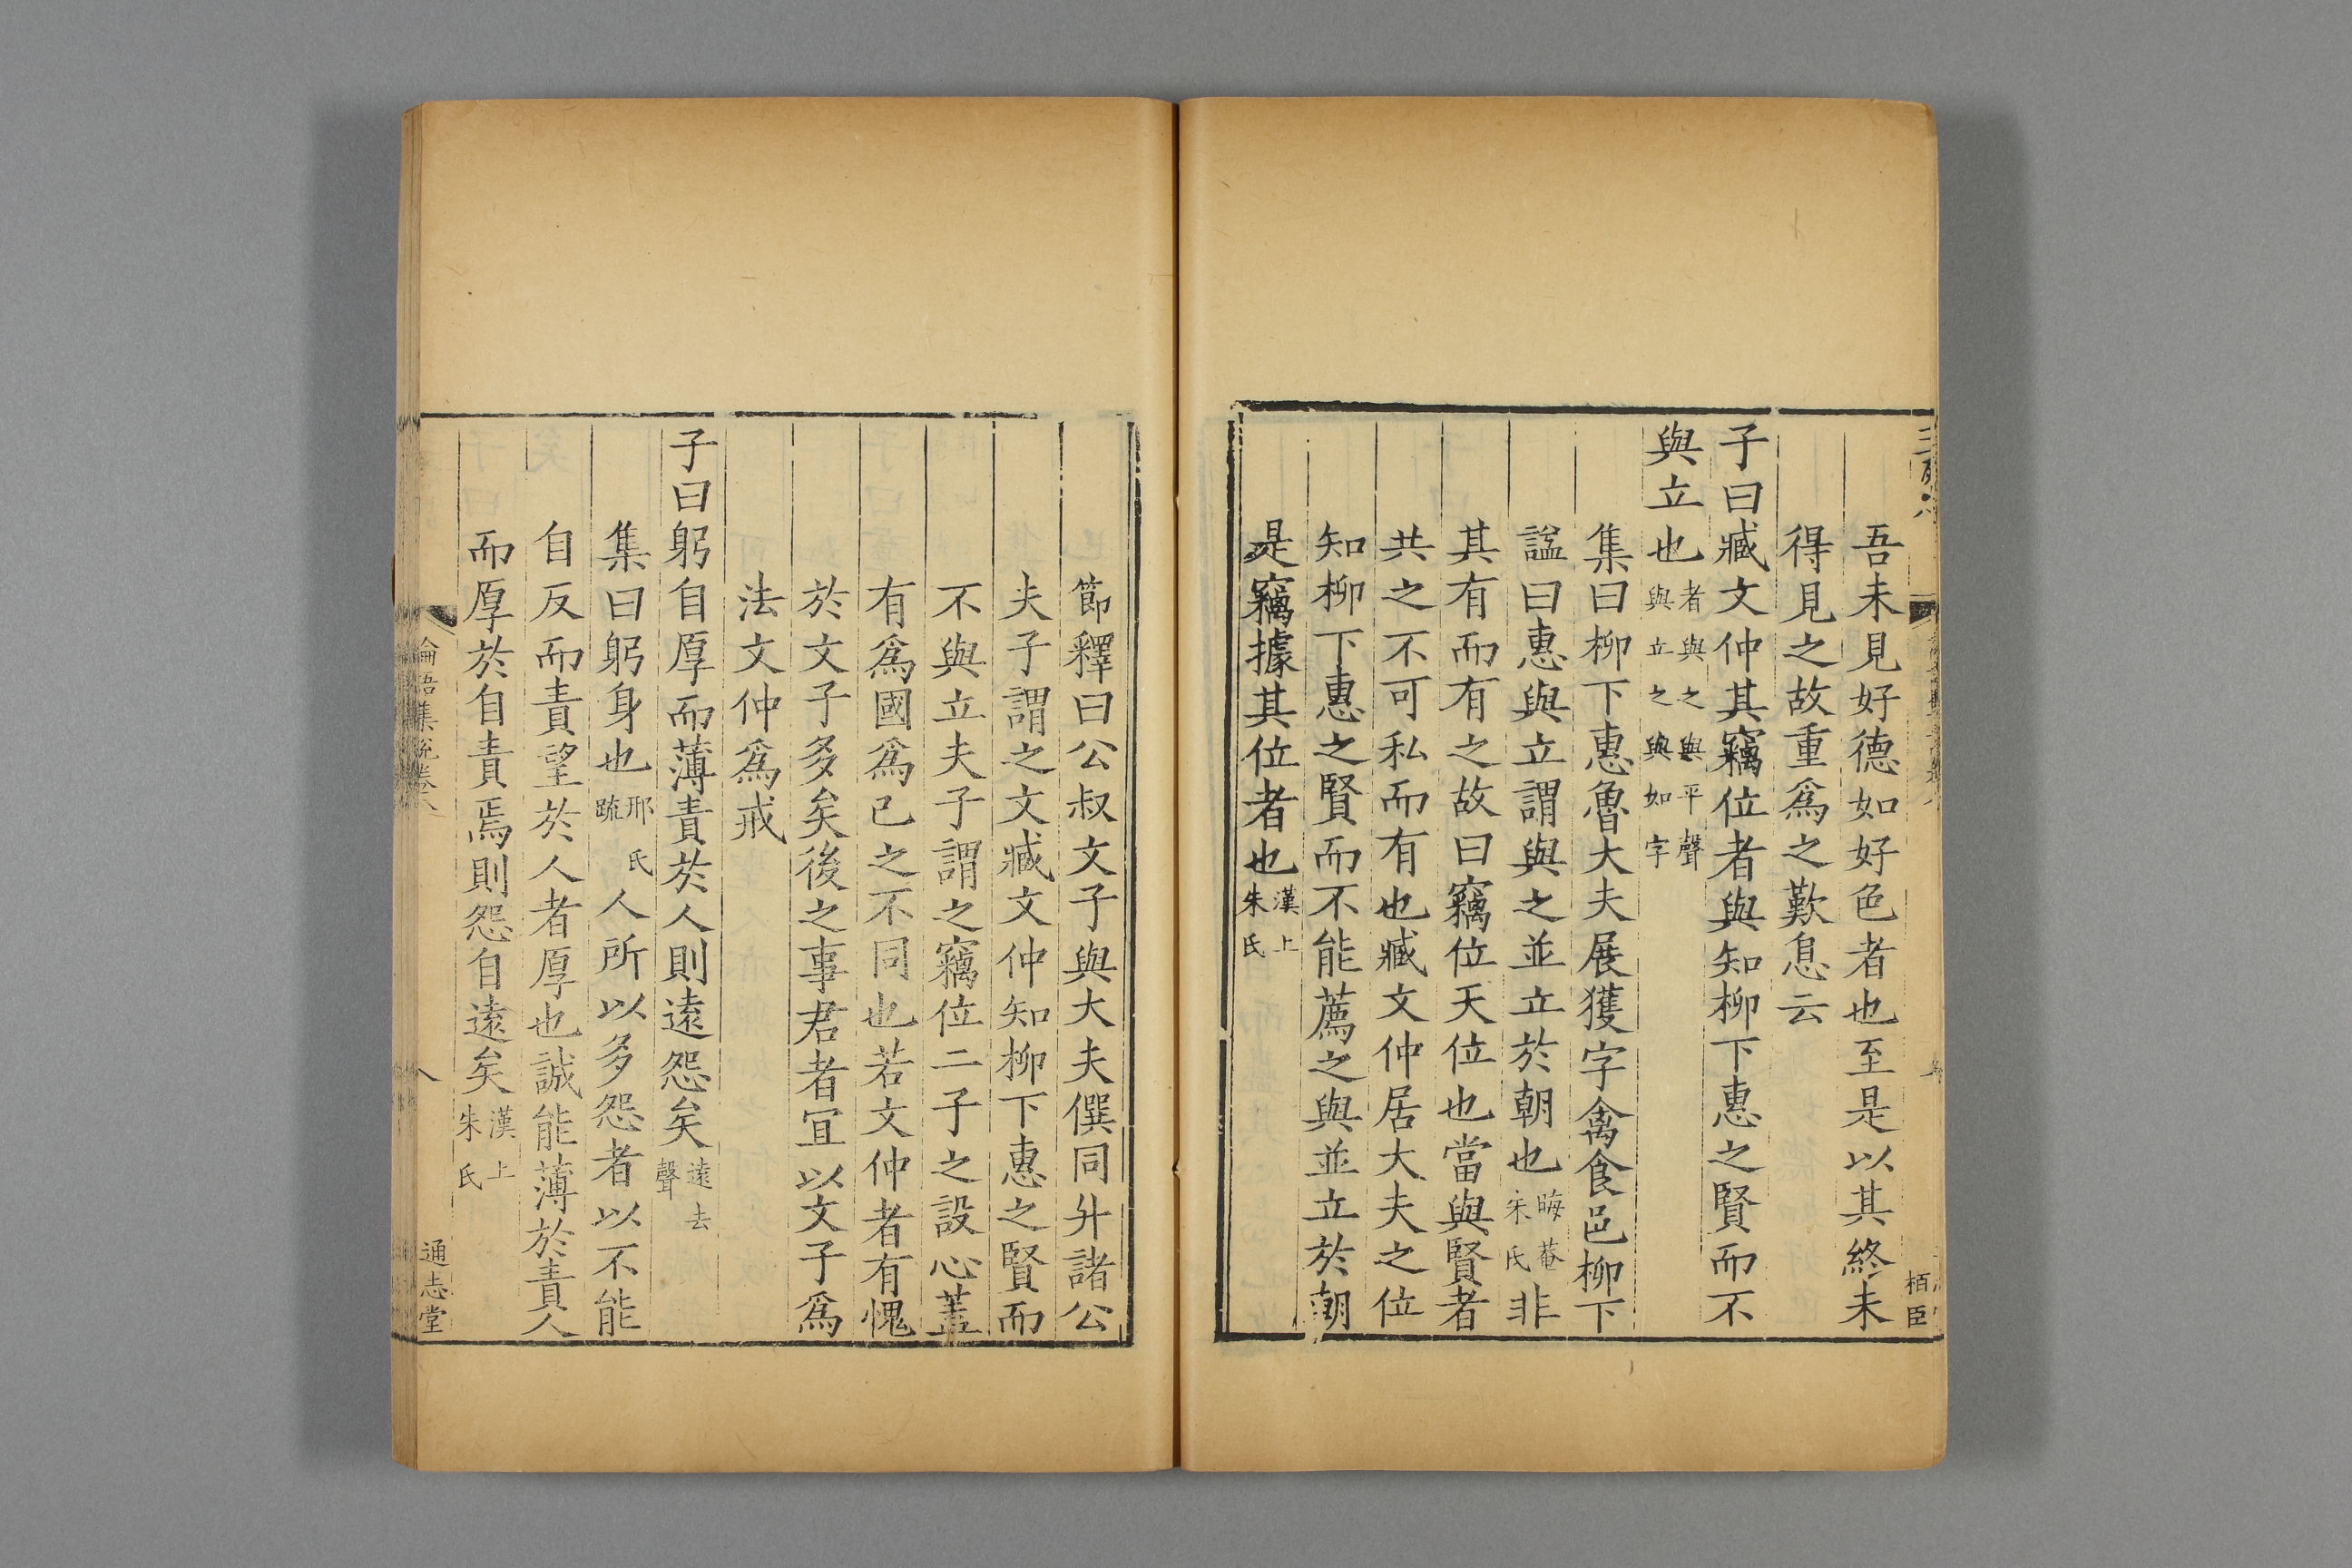 吾未見好德如好色者也至是以其終未
得見之故重爲之歎息云
子曰臧文仲其竊位者與知柳下惠之賢而不
與立也者與之與平聲與立之與如字
集曰柳下惠魯大夫展獲字禽食邑柳下
諡曰惠與立謂與之並立於朝也晦菴朱氏非
其有而有之故曰竊位天位也當與賢者
共之不可私而有也臧文仲居大夫之位
知柳下惠之賢而不能薦之與並立於朝
是竊據其位者也漢上朱氏
節釋曰公叔文子與大夫僎同升諸公
夫子謂之文臧文仲知柳下惠之賢而
不與立夫子謂之竊位二子之設心蓋
有爲國爲己之不同也若文仲者有愧
於文子多矣後之事君者宜以文子爲
法文仲爲戒
子曰躬自厚而薄責於人則遠怨矣遠去聲
集曰躬身也邢氏疏人所以多怨者以不能
自反而責望於人者厚也誠能薄於責人
而厚於自責焉則怨自遠矣漢上朱氏
論語集說卷八
八
通志堂
栢臣